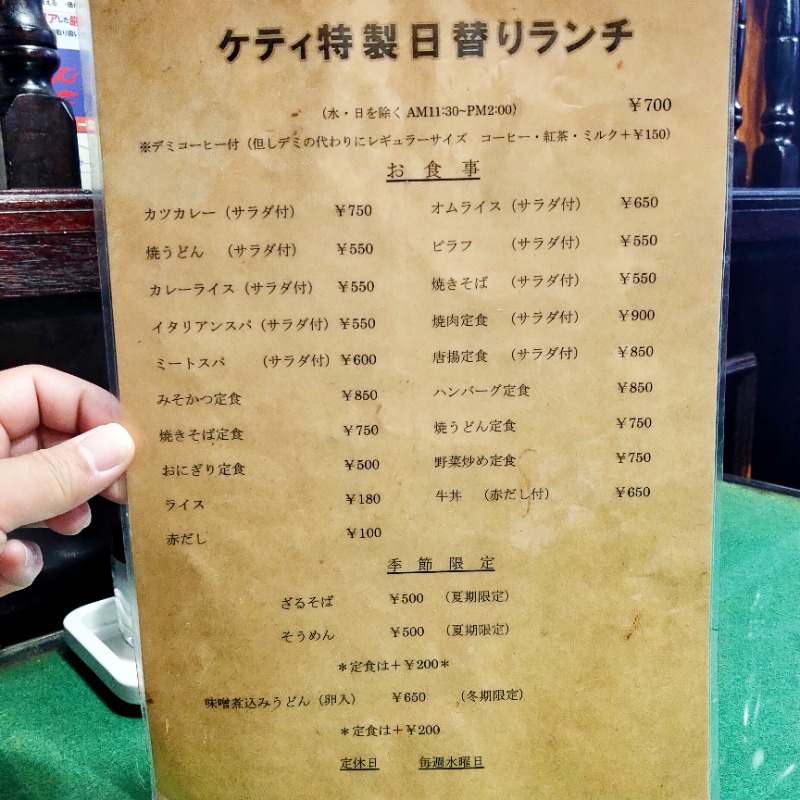 ケティ特製日替りランチ
(水・日を除く AM11:30~PM2:00) ¥700
※デミコーヒー付(但しデミの代わりにレギュラーサイズ コーヒー・紅茶・ミルク+¥150)
お食事
カツカレー(サラダ付) ¥750
焼うどん (サラダ付) ¥550
カレーライス(サラダ付) ¥550
イタリアンスパ(サラダ付) ¥550
ミートスパ (サラダ付) ¥600
みそかつ定食 ¥850
焼きそば定食 ¥750
おにぎり定食 ¥500
ライス ¥180
赤だし ¥100
オムライス(サラダ付) ¥650
ピラフ (サラダ付) ¥550
焼きそば (サラダ付) ¥550
焼肉定食 (サラダ付) ¥900
唐揚定食 (サラダ付) ¥850
ハンバーグ定食 ¥850
焼うどん定食 ¥750
野菜炒め定食 ¥750
牛丼 (赤だし付) ¥650
季節限定
ざるそば ¥500 (夏期限定)
そうめん ¥500 (夏期限定)
*定食は+¥200*
味噌煮込みうどん(卵入) ¥650 (冬期限定)
*定食は+¥200
定休日 毎週水曜日